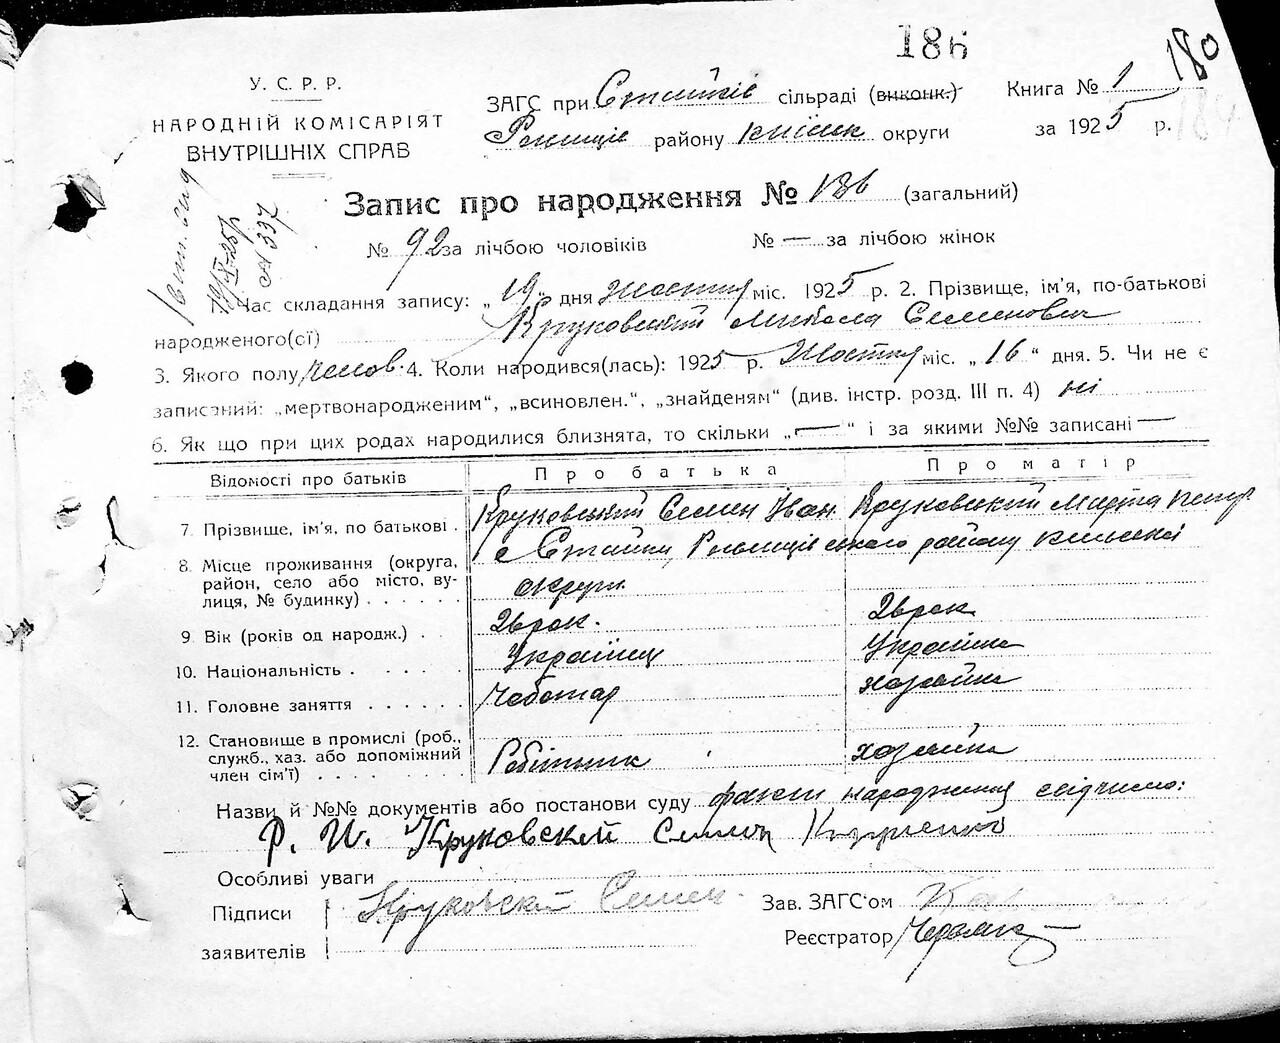 186
180
У. С. Р. Р.
НАРОДНІЙ КОМІСАРІЯТ
ВНУТРІШНІХ СПРАВ
ЗАГС при Стайків сільраді (виконк.) Книга № 1
району київськ округи за 1925 р.
Запис про народження № 186 (загальний)
№ 92 за лічбою чоловіків № — за лічбою жінок
Час складання запису: „19" дня Жовтня міс. 1925 р. 2. Прізвище, ім'я, по-батькові
народженого(ої) Круковський Микола Семенович
3. Якого полу чолов. 4. Коли народився(лась): 1925 р. Жовтня міс. „16" дня. 5. Чи не є
записаний: „мертвонародженим", „всиновлен.", „знайденям" (див. інстр. розд. III п. 4) ні
6. Як що при цих родах народилися близнята, то скільки „—" і за якими №№ записані —
Відомості про батьків Про батька Про матір
7. Прізвище, ім'я, по батькові . Круковський Семен Іван Круковський Марта Петр
8. Місце проживання (округа, район, село або місто, вулиця, № будинку) . . . . . . с Стайки, району київської
округи
9. Вік (років од народж.) . . 28 рок. 28 рок
10. Національність . . . . Українець Українка
11. Головне заняття . . . . . . Чоботар хазяйка
12. Становище в промислі (роб., служб., хаз. або допоміжний член сім'ї) . . . . . . . . Робітник хозяйка
Назви й №№ документів або постанови суду факт народження свідчимо:
Круковский Семен
Особливі уваги
Підписи Круковский Семен Зав. ЗАГС'ом
заявителів Реєстратор